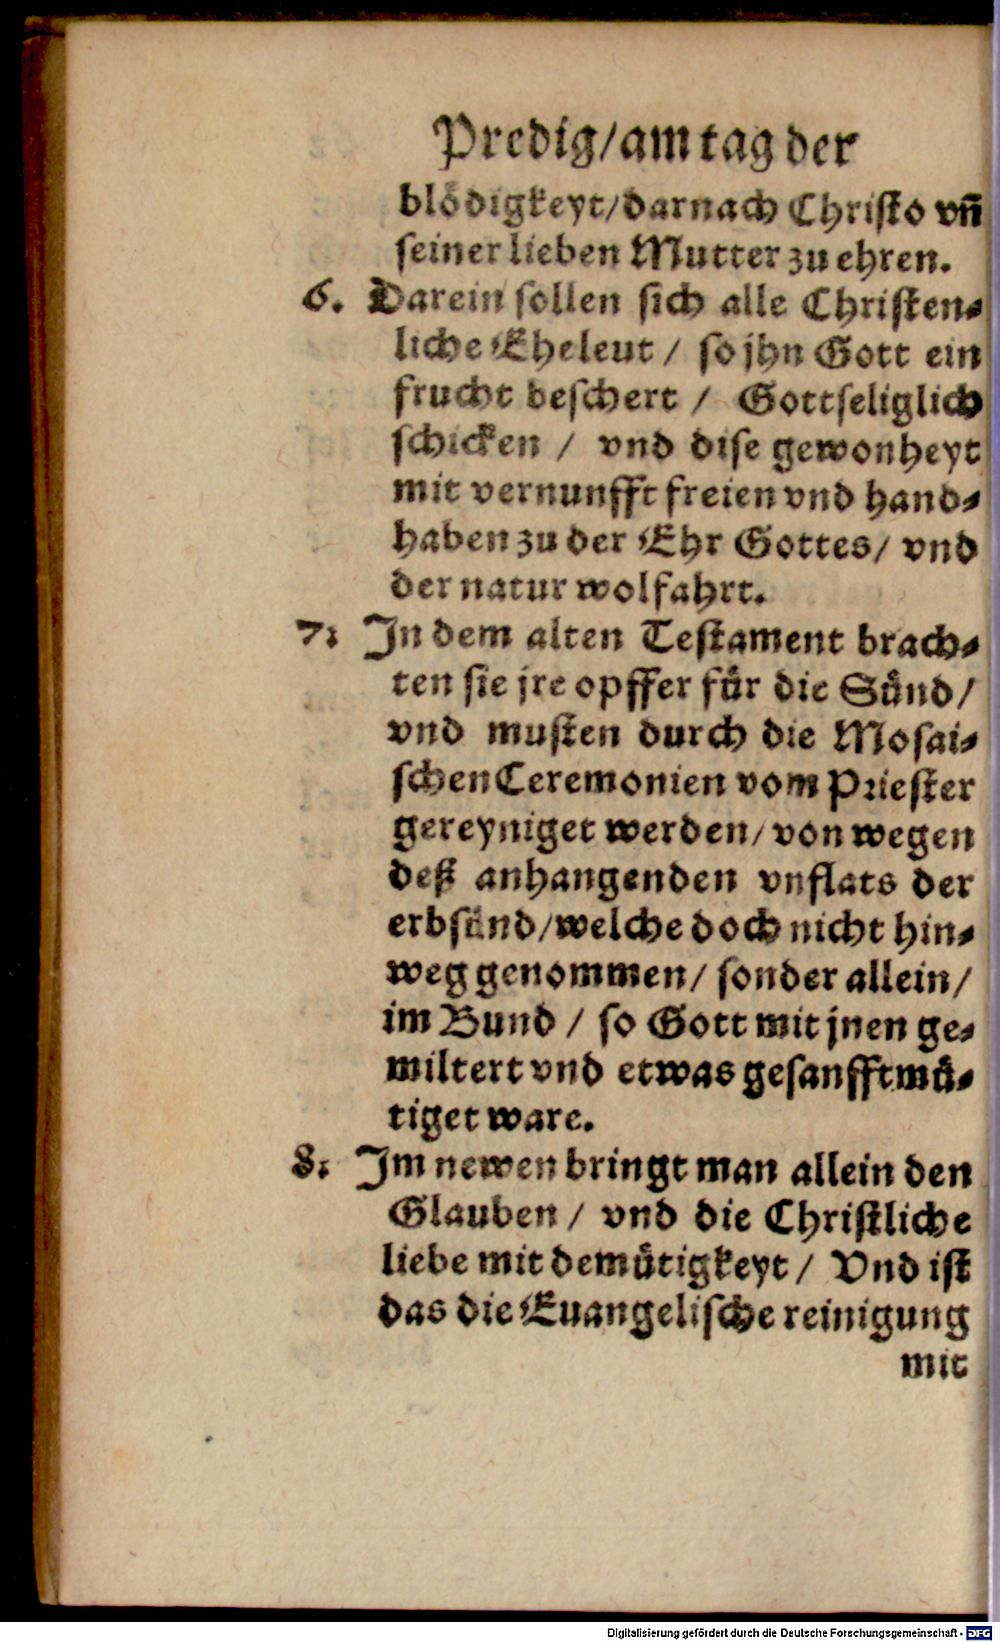 Predig/am tag der
blödigkeyt/darnach Christo vñ
seiner lieben Mutter zu ehren.
6. Darein sollen sich alle Christen-
liche Eheleut / so jhn Gott ein
frucht beschert / Gottseliglich
schicken / vnd dise gewonheyt
mit vernunfft freien vnd hand-
haben zu der Ehr Gottes/ vnd
der natur wolfahrt.
7. In dem alten Testament brach-
ten sie jre opffer für die Sünd/
vnd musten durch die Mosai-
schen Ceremonien vom Priester
gereyniget werden/ von wegen
deß anhangenden vnflats der
erbsünd/welche doch nicht hin-
weg genommen/ sonder allein/
im Bund / so Gott mit jnen ge-
miltert vnd etwas gesanfftmü-
tiget ware.
8. Im newen bringt man allein den
Glauben / vnd die Christliche
liebe mit demütigkeyt / Vnd ist
das die Euangelische reinigung
mit
Digitalisierung gefördert durch die Deutsche Forschungsgemeinschaft - DFG